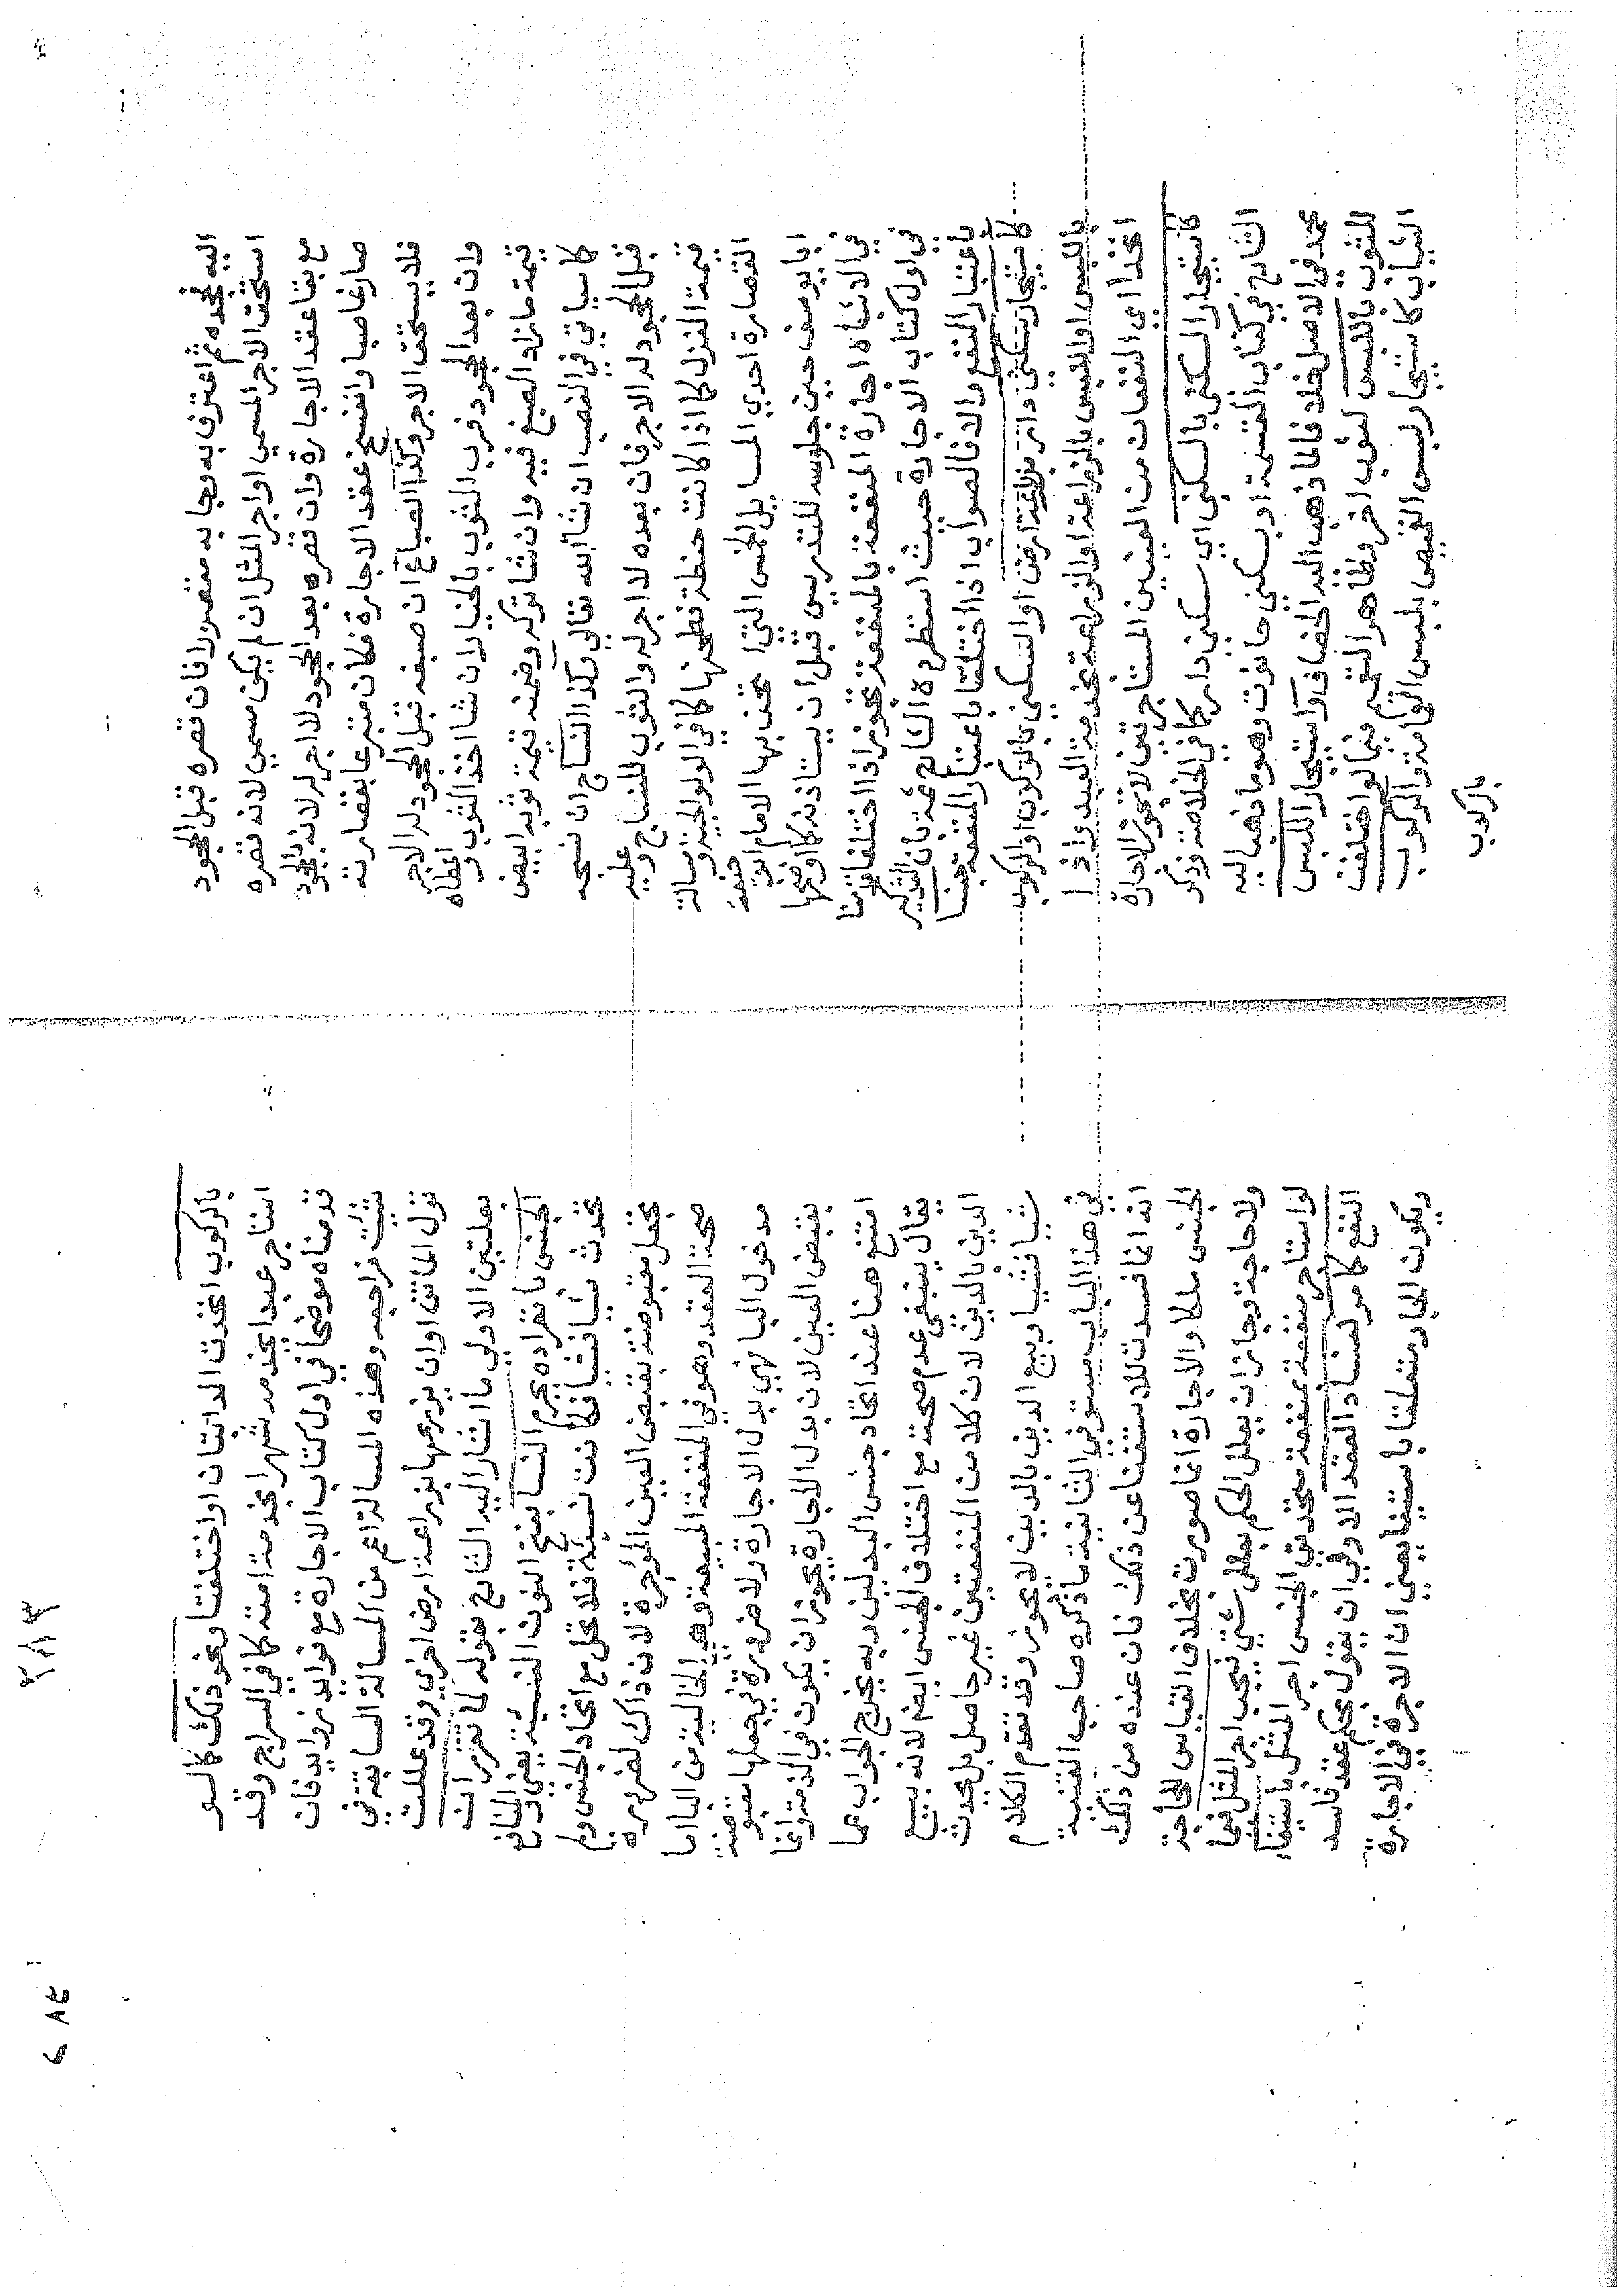 اليه فجحده ثم اعترف به وجا به مقصورا فان قصره قبل الجحود
استحق الاجر المسمي او اجر المثل ان لم يكن مسمي لانه قصره
مع بقا عقد الاجارة وان قصره بعد الجحود لا اجر له لانه بالجحود
صار غاصبا وانفسخ عقد الاجارة فكان متبرعا بقصارته
فلا يستحق الاجر وكذا الصباغ ان صبغه قبل الجحود له الاجر
وان بعد الجحود فرب الثوب بالخيار ان شا اخذ الثوب واعطاه
قيمة ما زاد الصبغ فيه وان شا تركه وضمنه قيمة ثوبه ابيض
كما سياتي في الغصب ان شا الله تعالي وكذا النساج ان نسجه
قبل الجحود له الاجر فان بعده لا اجر له والثوب للنساج وعليه
قيمة الغزل كما اذا كانت حنطة فطحنها كما في الولوالجية ومسالة
القصارة احدي المسايل الخمس التي امتحن بها الامام ابو حنيفة
ابا يوسف حين جلوسه للتدريس قبل ان يستاذنه كما اوضحها
في الاشباه اجارة المنفعة بالمنفعة تجوز اذا اختلفا
باعتبار النفع والا فالصواب اذا اختلفتا باعتبار المنفعة جنسا
في اول كتاب الاجارة حيث استظهره الشارح ثمة بان التذكير
كاستيجار سكني دار بزراعة ارض او السكني بالركوب او الركوب
باللبس او اللبس بالزراعة او الزراعة بخدمة العبد واذا
اتحدا اي النفعان من العينين المستاجرتين لا تجوز الاجارة
كاستيجار السكني بالسكني اي سكني دار كما في الخلاصة وذكر
الشارح في كتاب القسمة او بسكني حانوت وهو ما ذهب اليه
محمد في الاصل خلافا لما ذهب اليه الخصاف واستيجار اللبس
للثوب باللبس لثوب اخر وظاهره التعميم فيما لو اختلفت
الثياب كاستيجار لبس القميص بلبس العمامة والركوب
بالركوب
بالركوب اتحدت الدابتان او اختلفتا ونحو ذلك كما لو
استاجر عبدا يخدمه شهرا بخدمة امته كما في السراج وقد
قدمناه موضحا في اول كتاب الاجارة مع فوايد زوايد فان
شيت فراجعه وهذه المسالة اعم من المسالة السابقة في
قول الماتن او ان يزرعها بزراعة ارض اخري وقد عللت
بعلتين الاولي ما اشار اليه الشارح بقوله لما تقرر ان
الجنس بانفراده يحرم النسا بفتح النون النسيئة يعني والمنافع
تحدث شيا فشيا فكانت نسيئة فلا تحل مع اتحاد الجنس ولم
تجعل مقبوضة بقبض العين المؤجرة لان ذاك لضرورة
صحة العقد وهو في المنفعة المبيعة وهي الخالية من البا اما
مدخول البا فهي بدل الاجارة ولا ضرورة في جعلها مقبوضة
بقبض العين لان بدل الاجارة يجوز ان يكون في الذمة وانما
امتنع هنا عند اتحاد جنس البدلين وبه يخرج الجواب عما
يقال ينبغي عدم صحته مع اختلاف الجنس ايضا لانه بيع
الدين بالدين لان كلا من المنفعتين غير حاصل بل يحدث
شيا فشيا وبيع الدين بالدين لا يجوز وقد تقدم الكلام
في هذا الباب مستوفي الثانية ما ذكره صاحب القنية
انه انما فسدت للاستغناء عن ذلك فان عنده من ذلك
الجنس ملكا والاجارة انما صورت بخلاف القياس للحاجة
ولا حاجة وجاز ان يعلل الحكم بعلل شتي فيجب اجر المثل فيما
لو استاجر منفعة بمنفعة متحدتي الجنس اجر المثل باستيفاء
النفع كما مر لفساد العقد الاولي ان يقول بحكم عقد فاسد
ويكون الجار متعلقا باستيفا يعني ان الاجرة في الاجارة
٣٨٣
٢٨٤